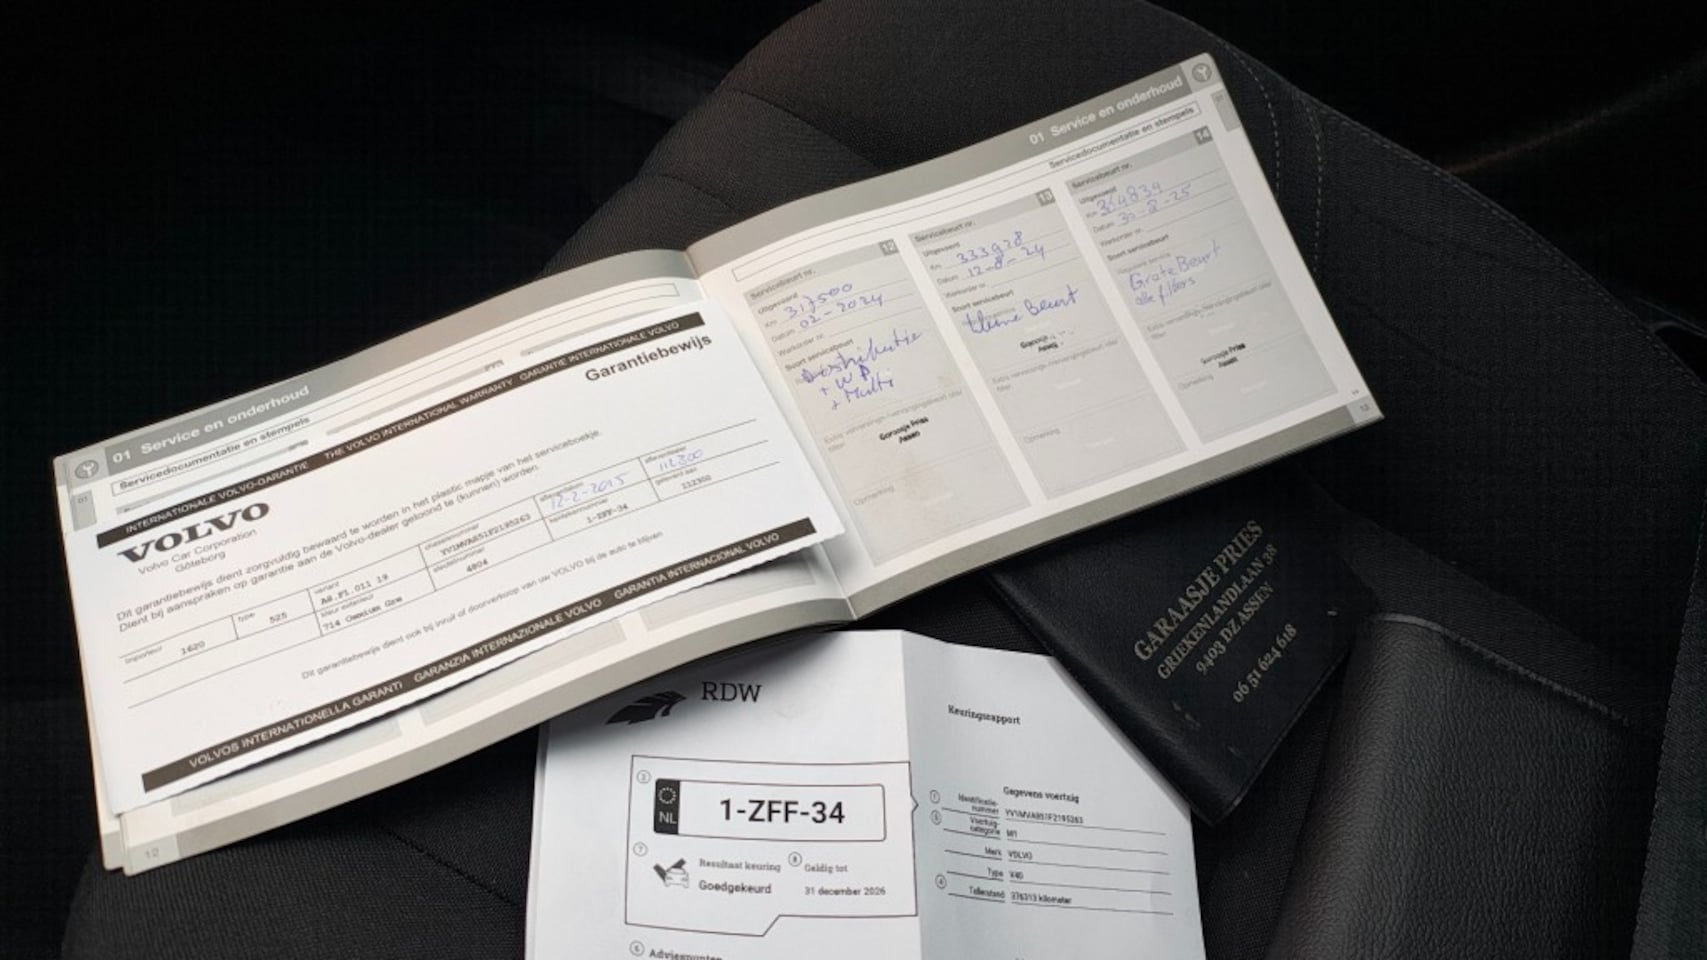 01 Service en onderhoud
Servicedocumentatie en stempels
INTERNATIONALE VOLVO-GARANTIE THE VOLVO INTERNATIONAL WARRANTY GARANTIE INTERNATIONALE VOLVO
Garantiebewijs
VOLVO
Volvo Car Corporation
Göteborg
Dit garantiebewijs dient zorgvuldig bewaard te worden in het plastic mapje van het serviceboekje.
Dient bij aanspraken op garantie aan de Volvo-dealer getoond te (kunnen) worden.
importeur 1620
type 525
variant A8.F1.011 19
kleur exterieur 714 Osmium Grw
chassisnummer YV1MVA851F2195263
sleutelnummer 4804
afleverdatum 12-2-2015
kentekennummer 1-ZFF-34
afleverdealer 112300
geleverd aan 112300
Dit garantiebewijs dient ook bij inruil of doorverkoop van uw VOLVO bij de auto te blijven
VOLVOS INTERNATIONELLA GARANTI GARANZIA INTERNAZIONALE VOLVO GARANTIA INTERNACIONAL VOLVO
12
01 Service en onderhoud
Servicedocumentatie en stempels
12
Servicebeurt nr.
Uitgevoerd
Km 317500
Datum 02-2024
Werkorder nr.
Soort servicebeurt
Distributie
+ WP
+ Multi
Extra verversings-/vervangingsbeurt olie/
filter
Garaasje Pries
Assen
Opmerking
13
Servicebeurt nr.
Uitgevoerd
Km 333928
Datum 12-8-24
Werkorder nr.
Soort servicebeurt
kleine Beurt
Assen
Extra verversings-/vervangingsbeurt olie/
filter
Opmerking
14
Servicebeurt nr.
Uitgevoerd
Km
Datum
Werkorder nr.
Soort servicebeurt
Reguliere service
Grote Beurt
alle filters
Extra verversings-/vervangingsbeurt olie/
filter
Garaasje Pries
Assen
Opmerking
13
GARAASJE PRIES
GRIEKENLANDLAAN 28
9403 DZ ASSEN
06 51 624 618
RDW
2
NL
1-ZFF-34
7
Resultaat keuring
Goedgekeurd
8
Geldig tot
31 december 2026
6 Adviespunten
Keuringsrapport
Gegevens voertuig
1 Identificatie-
nummer YV1MVA851F2195263
5 Voertuig-
categorie M1
Merk VOLVO
Type V40
4 Tellerstand 376313 kilometer